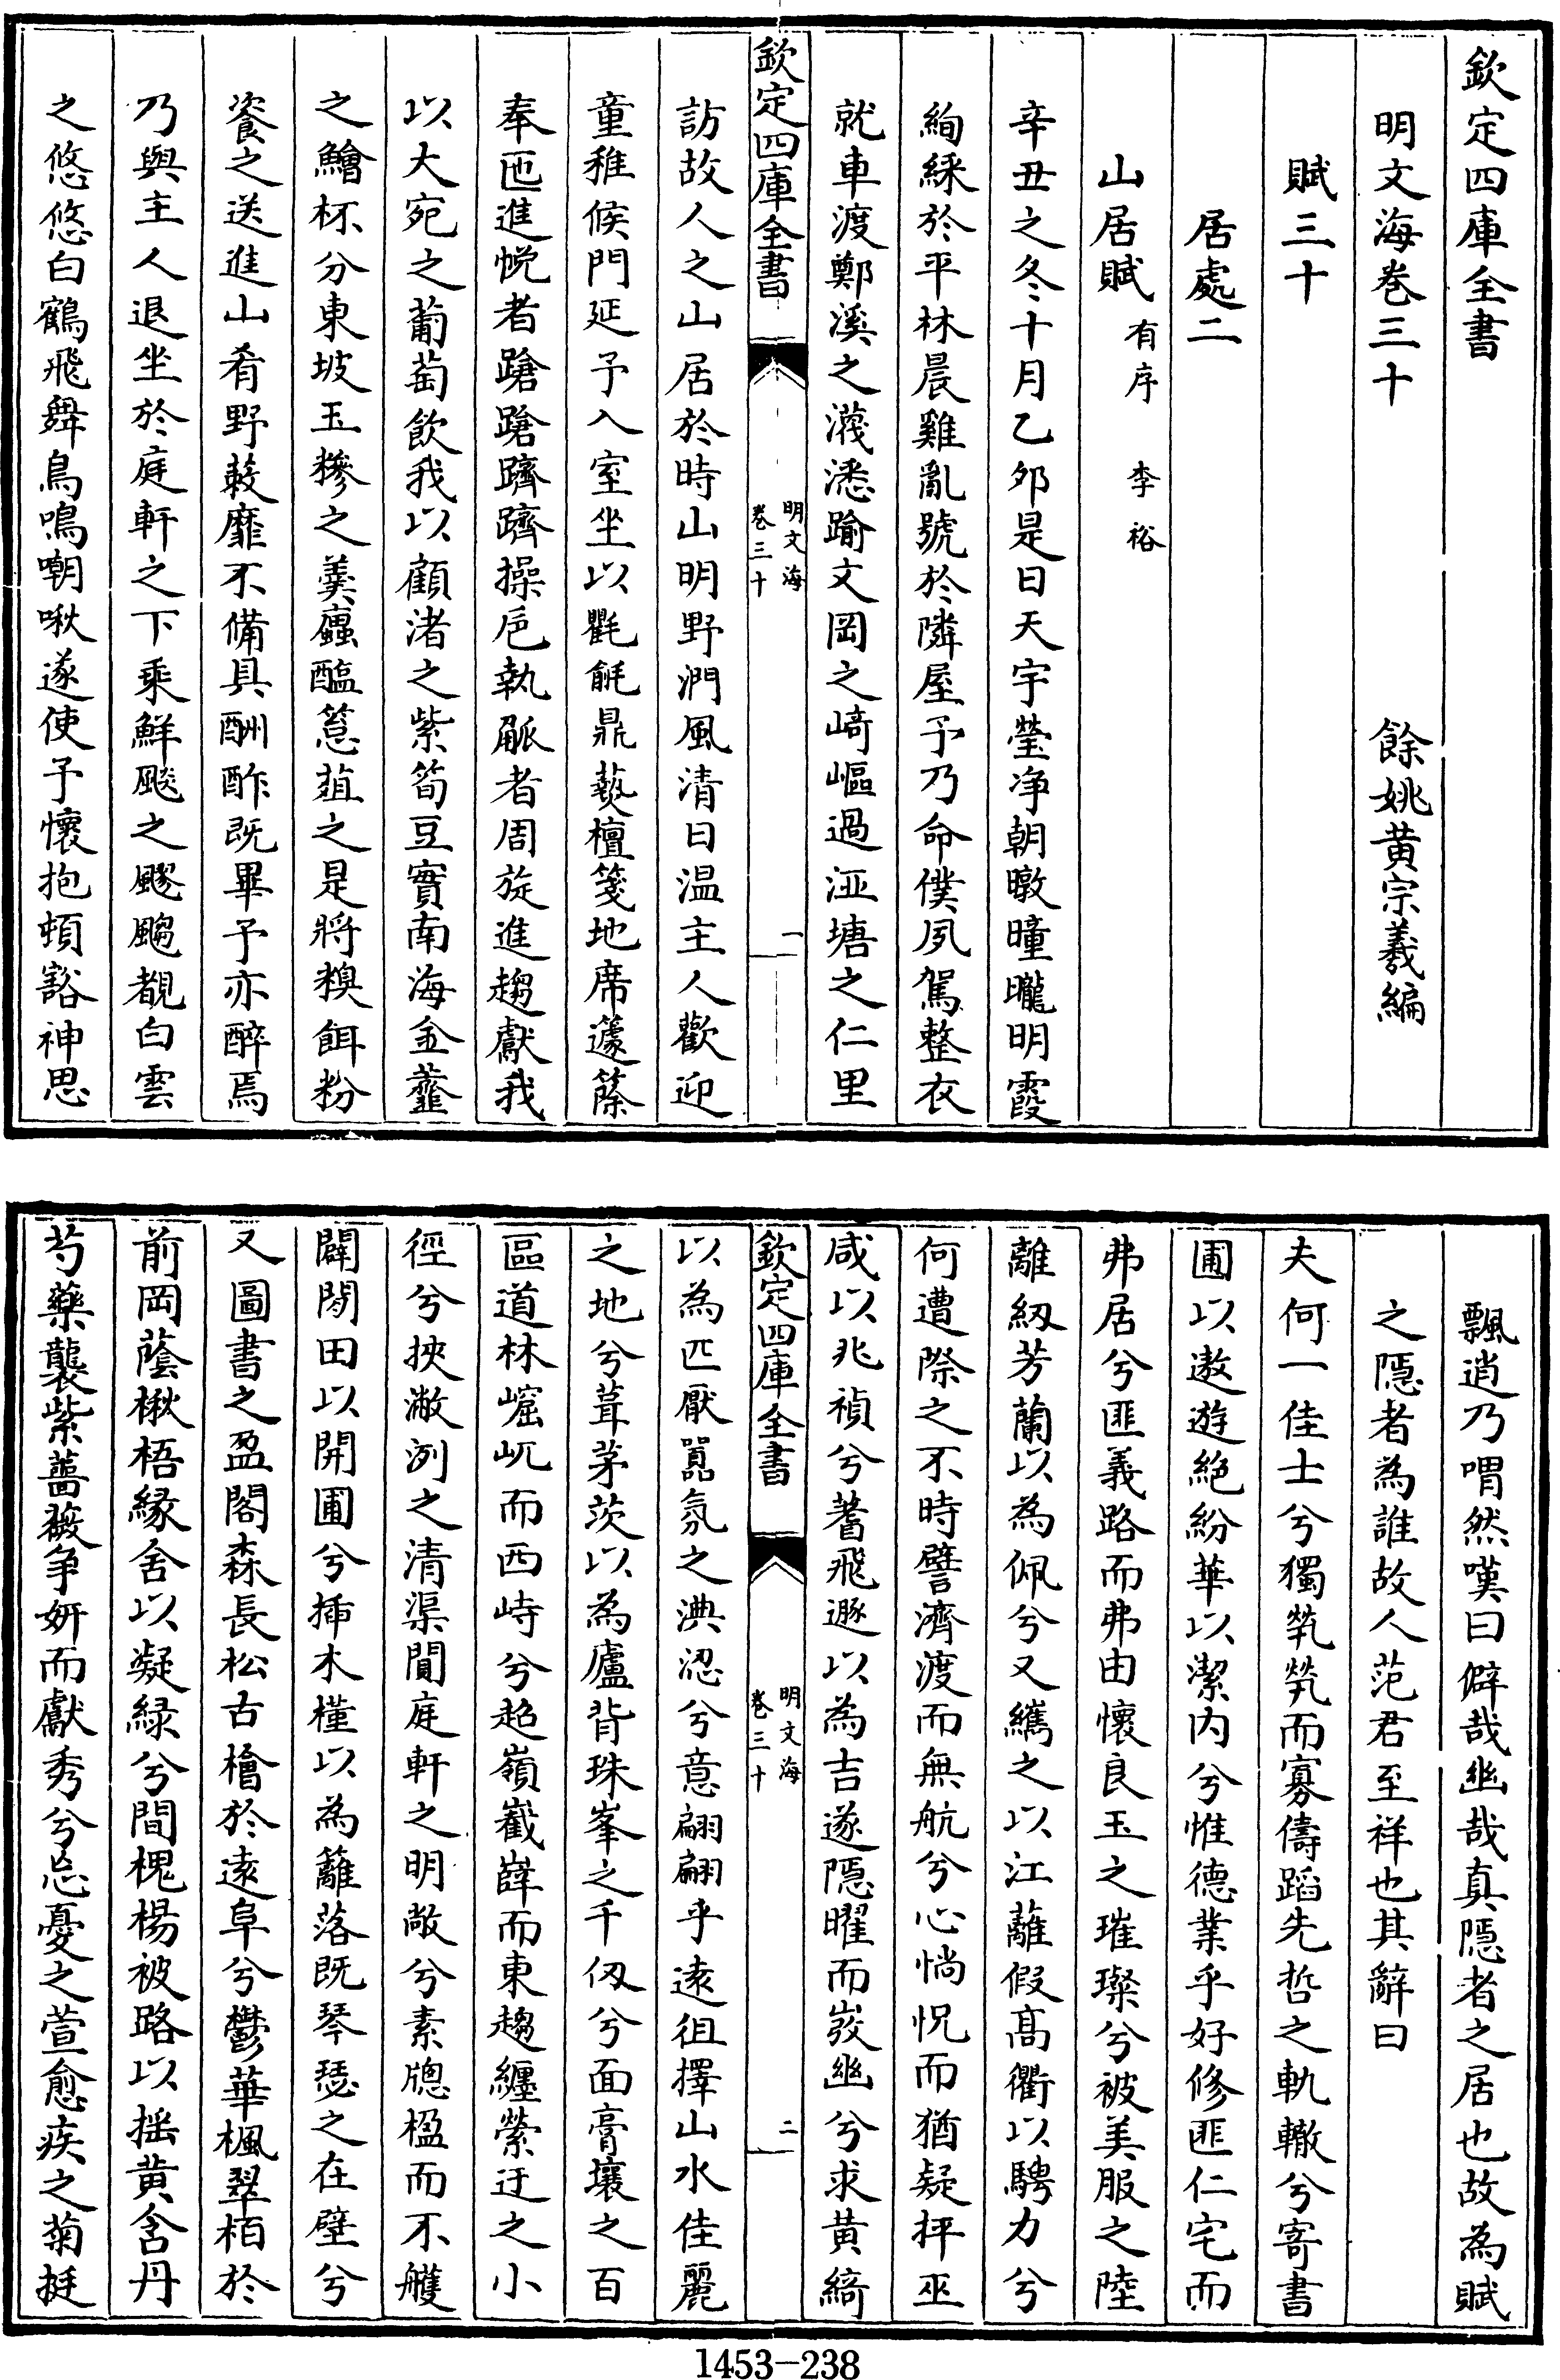 欽定四庫全書
明文海卷三十
餘姚黃宗羲編
賦三十
居處二
山居賦有序 李裕
辛丑之冬十月乙卯是日天宇瑩浄朝暾曈曨明霞
絢綵於平林晨雞亂號於隣屋予乃命僕夙駕整衣
就車渡鄭溪之濺㴽踰文岡之崎嶇過洰塘之仁里
欽定四庫全書
明文海
卷三十
一
訪故人之山居於時山明野潤風清日温主人歡迎
童稚候門延予入室坐以氍毹鼎爇檀箋地席籧篨
奉匜進帨者蹌蹌躋躋操巵執觚者周旋進趨獻我
以大宛之葡萄飲我以顧渚之紫筍豆實南海金虀
之鱠杯分東坡玉糝之羮蠯醢䓗菹之是將糗餌粉
餈之送進山肴野蔌靡不備具酬酢既畢予亦醉焉
乃與主人退坐於庭軒之下乘鮮飇之飂飀覩白雲
之悠悠白鶴飛舞鳥鳴嘲啾遂使予懷抱頓豁神思
飄逍乃喟然嘆曰僻哉幽哉真隱者之居也故為賦
之隱者為誰故人范君至祥也其辭曰
夫何一佳士兮獨煢煢而寡儔蹈先哲之軌轍兮寄書
圃以遨遊絶紛華以潔内兮惟德業乎好修匪仁宅而
弗居兮匪義路而弗由懷良玉之璀璨兮被美服之陸
離紉芳蘭以為佩兮又纗之以江蘺假髙衢以騁力兮
何遭際之不時譬濟渡而無航兮心惝怳而猶疑抨巫
咸以兆禎兮蓍飛遯以為吉遂隱曜而岌幽兮求黄綺
欽定四庫全書
明文海
卷三十
二
以為匹厭囂氛之淟涊兮意翩翩乎逺徂擇山水佳麗
之地兮葺茅茨以為廬背珠峯之千仭兮面膏壤之百
區道林崛屼而西峙兮超嶺巀嶭而東趨纏縈迂之小
徑兮挾潎洌之清渠閴庭軒之明敞兮素牕楹而不雘
闢閒田以開圃兮揷木槿以為籬落既琴瑟之在壁兮
又圖書之盈閣森長松古檜於逺阜兮鬱華楓翠栢於
前岡蔭楸梧緣舍以凝緑兮間槐楊被路以揺黄含丹
芍藥襲紫薔薇争妍而獻秀兮忘憂之萱愈疾之菊挺
1453-238